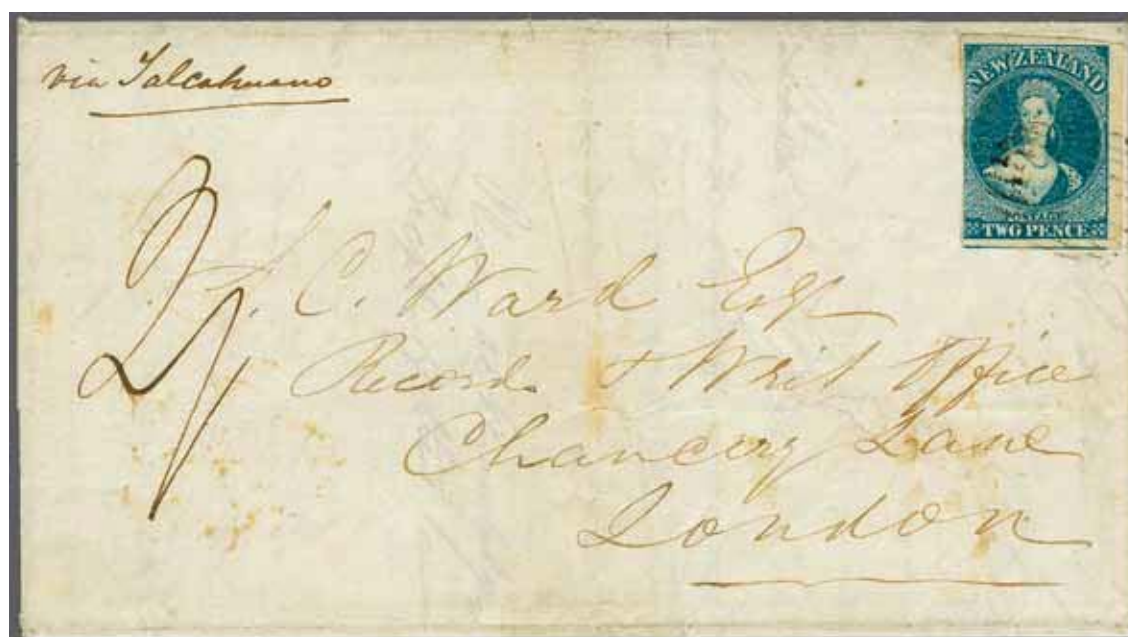 via Talcahuano
NEW ZEALAND
POSTAGE
TWO PENCE
2/
C. Ward Esq
Record & Writ Office
Chancery Lane
London